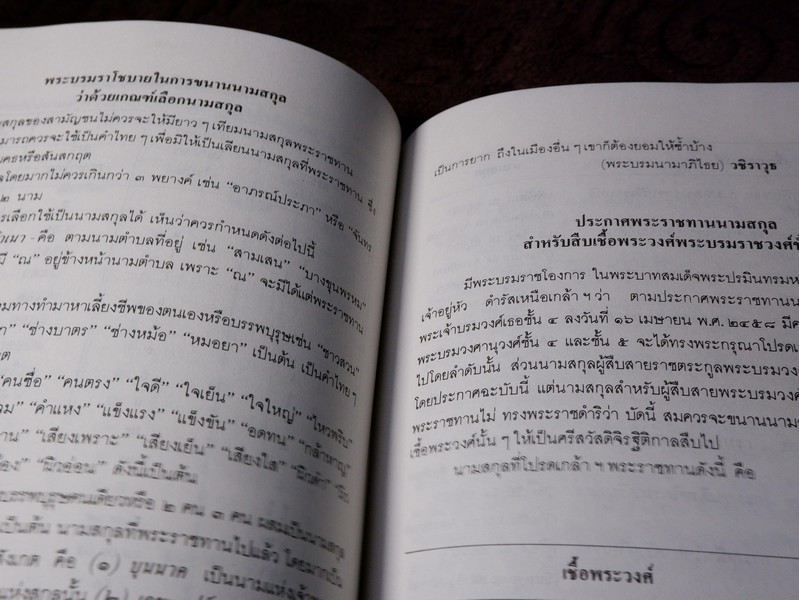 พระบรมราโชบายในการขนานนามสกุล
ว่าด้วยเกณฑ์เลือกนามสกุล
สกุลของสามัญชนไม่ควรจะให้มียาว ๆ เทียมนามสกุลพระราชทาน
มารถควรจะใช้เป็นคำไทย ๆ เพื่อมิให้เป็นเลียนนามสกุลที่พระราชทาน ซึ่ง
มคธหรือสันสกฤต
โดยมากไม่ควรเกินกว่า ๓ พยางค์ เช่น “อาภรณ์ประภา” หรือ “จันทร
๒ นาม
รเลือกใช้เป็นนามสกุลได้ เห็นว่าควรกำหนดดังต่อไปนี้
- คือ ตามนามตำบลที่อยู่ เช่น “สามเสน” “บางขุนพรหม”
มี “ณ” อยู่ข้างหน้านามตำบล เพราะ “ณ” จะมีได้แต่พระราชทาน
มทางทำมาหาเลี้ยงชีพของตนเองหรือบรรพบุรุษเช่น “ชาวสวน”
“ช่างบาตร” “ช่างหม้อ” “หมอยา” เป็นต้น เป็นคำไทยๆ
“คนซื่อ” “คนตรง” “ใจดี” “ใจเย็น” “ใจใหญ่” “ไหวพริบ”
“คำแหง” “แข็งแรง” “แข็งขัน” “อดทน” “กล้าหาญ”
“เสียงเพราะ” “เสียงเย็น” “เสียงใส”
“ผิวอ่อน” ดังนี้เป็นต้น
บรรพบุรุษคนเดียวหรือ ๒ คน ๓ คน ผสมเป็นนามสกุล
เป็นต้น นามสกุลที่พระราชทานไปแล้ว โดยมากเป็น
ังเกต คือ (๑) บุนนาค เป็นนามแห่งเจ้า
แห่งสกุลนั้น (๒)
เป็นการยาก ถึงในเมืองอื่น ๆ เขาก็ต้องยอมให้ซ้ำบ้าง
(พระบรมนามาภิไธย) วชิราวุธ
ประกาศพระราชทานนามสกุล
สำหรับสืบเชื้อพระวงศ์พระบรมราชวงศ์ชั้
มีพระบรมราชโองการ ในพระบาทสมเด็จพระปรมินทรมห
เจ้าอยู่หัว ดำรัสเหนือเกล้า ฯ ว่า ตามประกาศพระราชทานน
พระเจ้าบรมวงศ์เธอชั้น ๔ ลงวันที่ ๑๖ เมษายน พ.ศ. ๒๔๕๘ มี
พระบรมวงศานุวงศ์ชั้น ๔ และชั้น ๕ จะได้ทรงพระกรุณาโปรดเ
ไปโดยลำดับนั้น ส่วนนามสกุลผู้สืบสายราชตระกูลพระบรมวง
โดยประกาศฉะบับนี้ แต่นามสกุลสำหรับผู้สืบสายพระบรมวง
พระราชทานไม่ ทรงพระราชดำริว่า บัดนี้ สมควรจะขนานนาม
เชื้อพระวงศ์นั้น ๆ ให้เป็นศรีสวัสดิจิรฐิติกาลสืบไป
นามสกุลที่โปรดเกล้า ฯ พระราชทานดังนี้ คือ
เชื้อพระวงศ์